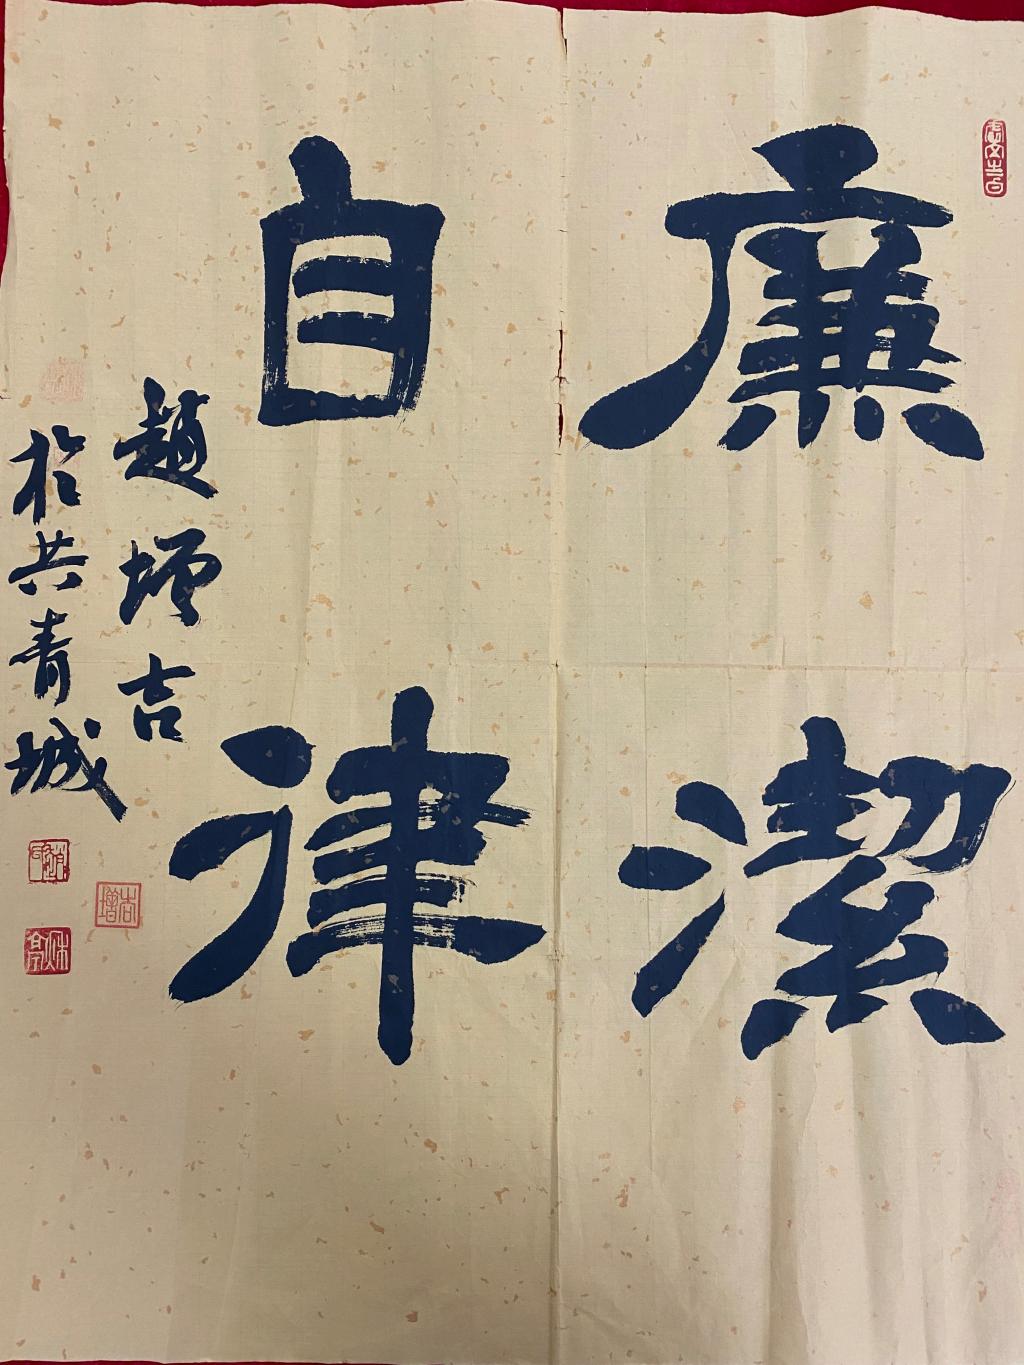 廉潔
自律
趙增吉
於共青城